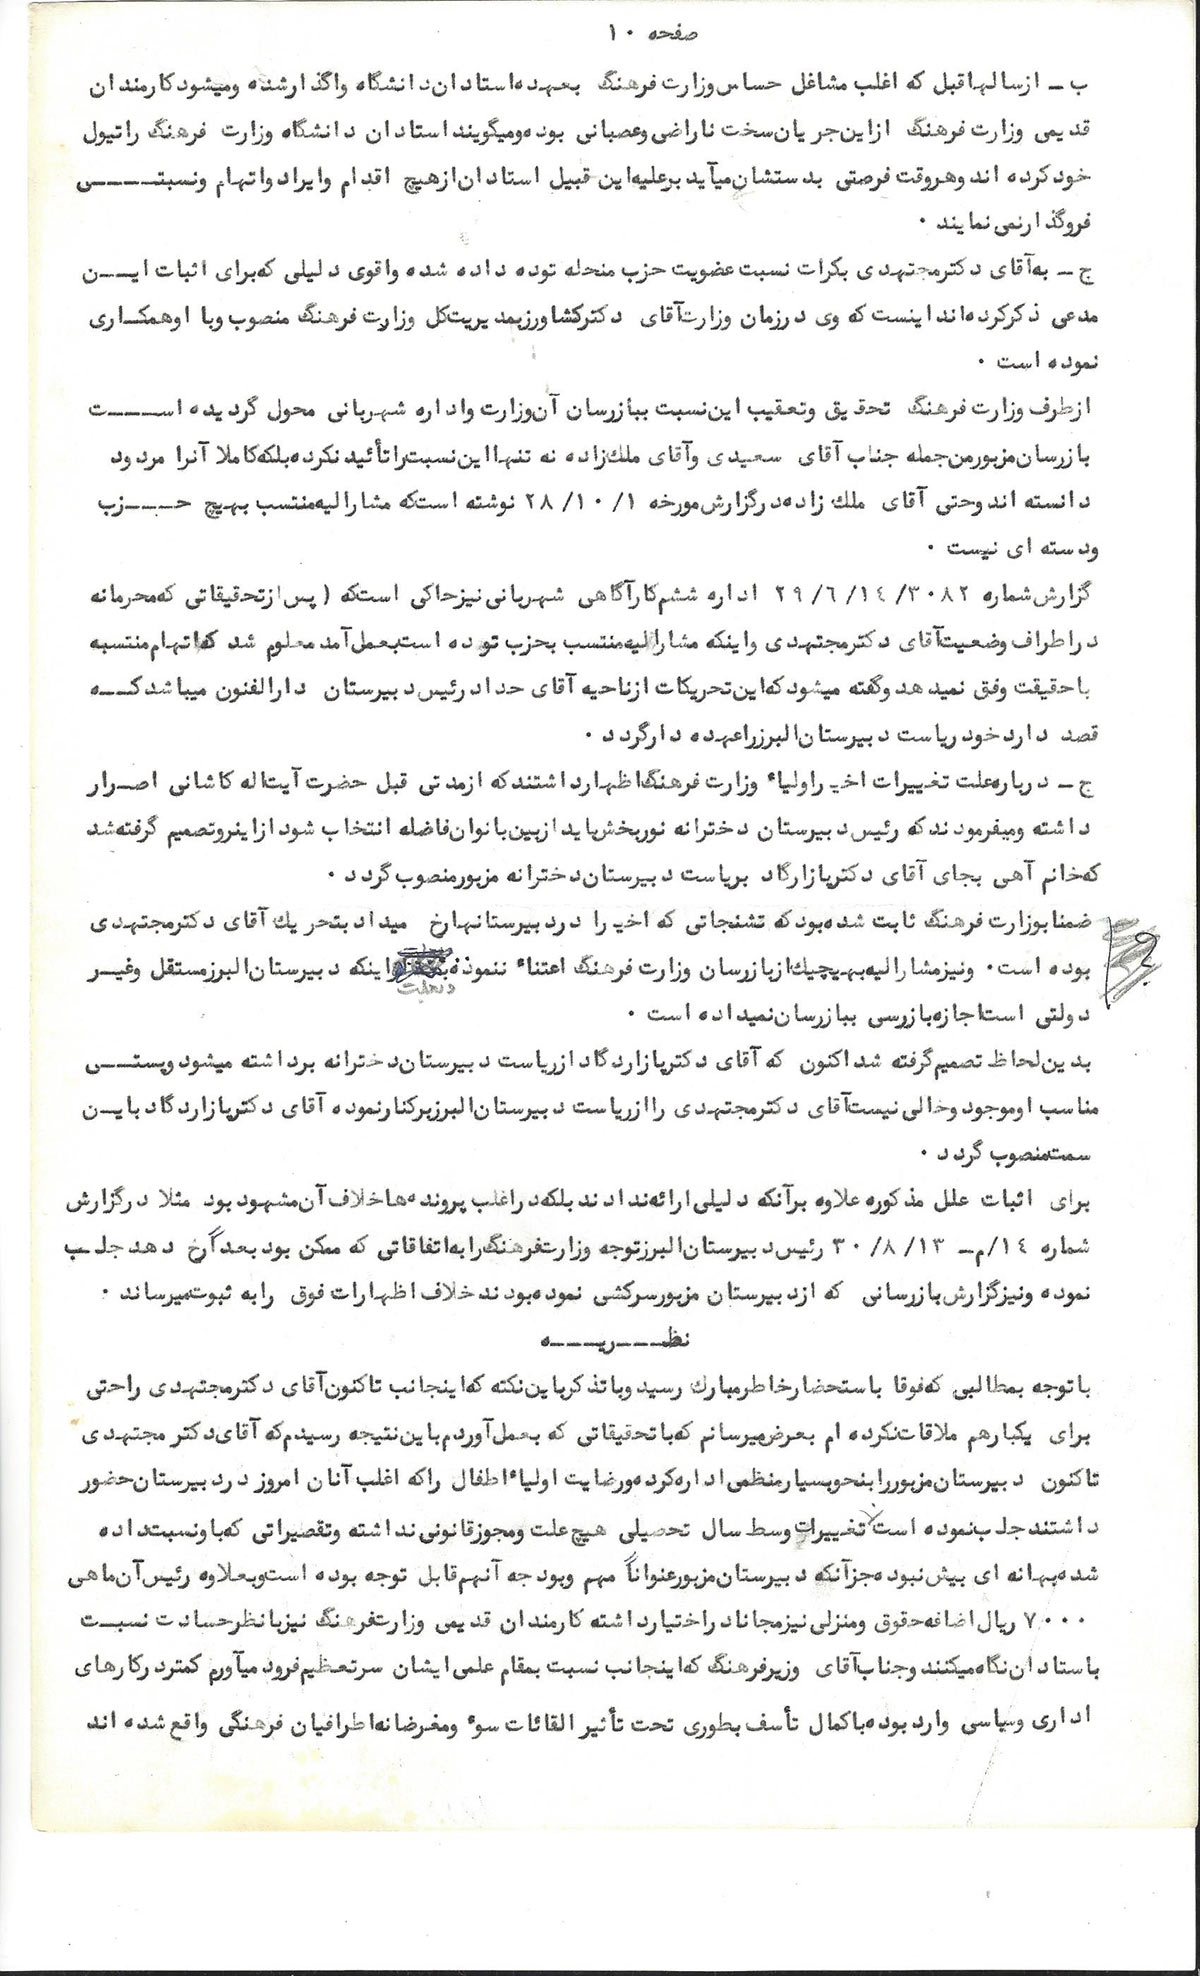 صفحه ۱۰
ب ـ ازسالهاقبل که اغلب مشاغل حساس وزارت فرهنگ بعهده استادان دانشگاه واگذارشده ومیشود کارمندان
قدیمی وزارت فرهنگ ازاین جریان سخت ناراضی وعصبانی بوده ومیگویند استادان دانشگاه وزارت فرهنگ راتیول
خودکرده اند وهروقت فرصتی بدستشان میآید برعلیه این قبیل استادان ازهیچ اقدام وایراد واتهام ونسبتـــــی
فروگذارنمی نمایند ۰
ج ـ به آقای دکترمجتهدی بکرات نسبت عضویت حزب منحله توده داده شده واقوی دلیلی که برای اثبات ایـــن
مدعی ذکرکرده اند اینست که وی درزمان وزارت آقای دکترکشاورزبمدیریت کل وزارت فرهنگ منصوب وبا اوهمکـاری
نموده است ۰
ازطرف وزارت فرهنگ تحقیق وتعقیب این نسبت ببازرسان آن وزارت واداره شهربانی محول گردیده اســــت
بازرسان مزبورمن جمله جناب آقای سعیدی وآقای ملك زاده نه تنها این نسبت راتأئید نکرده بلکه کاملا آنرا مردود
دانسته اند وحتی آقای ملك زاده درگزارش مورخه ۲۸/۱۰/۱ نوشته است که مشارالیه منتسب بهیچ حــــزب
ودسته ای نیست ۰
گزارش شماره ۳۰۸۲/ ۲۹/۶/۱۴ اداره ششم کارآگاهی شهربانی نیزحاکی است که ( پس ازتحقیقاتی که محرمانه
دراطراف وضعیت آقای دکترمجتهدی واینکه مشارالیه منتسب بحزب توده است بعمل آمد معلوم شد که اتهام منتسبه
باحقیقت وفق نمیدهد وگفته میشود که این تحریکات ازناحیه آقای حداد رئیس دبیرستان دارالفنون میباشد کــه
قصد دارد خود ریاست دبیرستان البرزراعهده دارگردد ۰
ج ـ درباره علت تغییرات اخیر اولیاء وزارت فرهنگ اظهارداشتند که ازمدتی قبل حضرت آیت اله کاشانی اصـرار
داشته ومیفرمودند که رئیس دبیرستان دخترانه نوربخش باید ازبین بانوان فاضله انتخاب شود ازاینروتصمیم گرفته شد
که خانم آهی بجای آقای دکتربازارگاد بریاست دبیرستان دخترانه مزبورمنصوب گردد ۰
ضمنا بوزارت فرهنگ ثابت شده بود که تشنجاتی که اخیرا دردبیرستانهارخ میداد بتحریك آقای دکترمجتهدی
بوده است ۰ ونیزمشارالیه بهیچیك ازبازرسان وزارت فرهنگ اعتناء ننموده واینکه دبیرستان البرزمستقل وغیـر
دولتی است اجازه بازرسی ببازرسان نمیداده است ۰
بدین لحاظ تصمیم گرفته شد اکنون که آقای دکترپازاردگاد ازریاست دبیرستان دخترانه برداشته میشود وپستـــی
مناسب اوموجود وخالی نیست آقای دکترمجتهدی را ازریاست دبیرستان البرزبرکنارنموده آقای دکترپازاردگاد باین
سمت منصوب گردد ۰
برای اثبات علل مذکوره علاوه برآنکه دلیلی ارائه ندادند بلکه دراغلب پرونده هاخلاف آن مشهود بود مثلا درگزارش
شماره ۱۴/م ـ ۳۰/۸/۱۳ رئیس دبیرستان البرزتوجه وزارت فرهنگ رابه اتفاقاتی که ممکن بود بعدا رخ دهد جلب
نموده ونیزگزارش بازرسانی که ازدبیرستان مزبورسرکشی نموده بودند خلاف اظهارات فوق رابه ثبوت میرساند ۰
نظـــریـــه
باتوجه بمطالبی که فوقا باستحضارخاطرمبارك رسید وباتذکرباین نکته که اینجانب تاکنون آقای دکترمجتهدی راحتی
برای یکبارهم ملاقات نکرده ام بعرض میرسانم که باتحقیقاتی که بعمل آوردم باین نتیجه رسیدم که آقای دکتر مجتهدی
تاکنون دبیرستان مزبوررا بنحوبسیارمنظمی اداره کرده ورضایت اولیاء اطفال راکه اغلب آنان امروز دردبیرستان حضور
داشتند جلب نموده است تغییرات وسط سال تحصیلی هیچ علت ومجوزقانونی نداشته وتقصیراتی که باونسبت داده
شده بهانه ای بیش نبوده جزآنکه دبیرستان مزبورعنواناً مهم وبودجه آنهم قابل توجه بوده است وبعلاوه رئیس آن ماهی
۷۰۰۰ ریال اضافه حقوق ومنزلی نیزمجانا دراختیارداشته کارمندان قدیمی وزارت فرهنگ نیزبانظرحسادت نسبـت
باستادان نگاه میکنند وجناب آقای وزیرفرهنگ که اینجانب نسبت بمقام علمی ایشان سرتعظیم فرود میآورم کمتردرکارهای
اداری وسیاسی وارد بوده باکمال تأسف بطوری تحت تأثیر القائات سوء ومغرضانه اطرافیان فرهنگی واقع شده اند